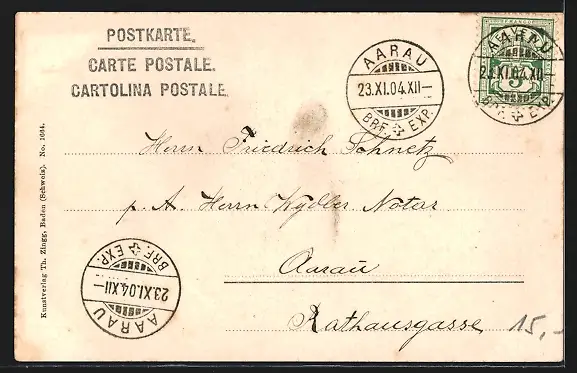 POSTKARTE.
CARTE POSTALE.
CARTOLINA POSTALE.
AARAU
23.XI.04.XII—
BRF. EXP.
AARAU
23.XI.04.XII—
BRF. EXP.
5
Herrn Friedrich Schnetz
p. A. Herrn Wydler Notar
Aarau
Rathausgasse
15,-
BRF. EXP.
23.XI.04.XII—
AARAU
Kunstverlag Th. Zingg, Baden (Schweiz). No. 1664.